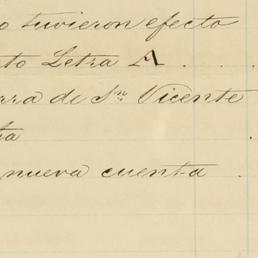 o tuvieron efecto
to Letra A . . .
rra de Sn. Vicente
ta .
nueva cuenta .